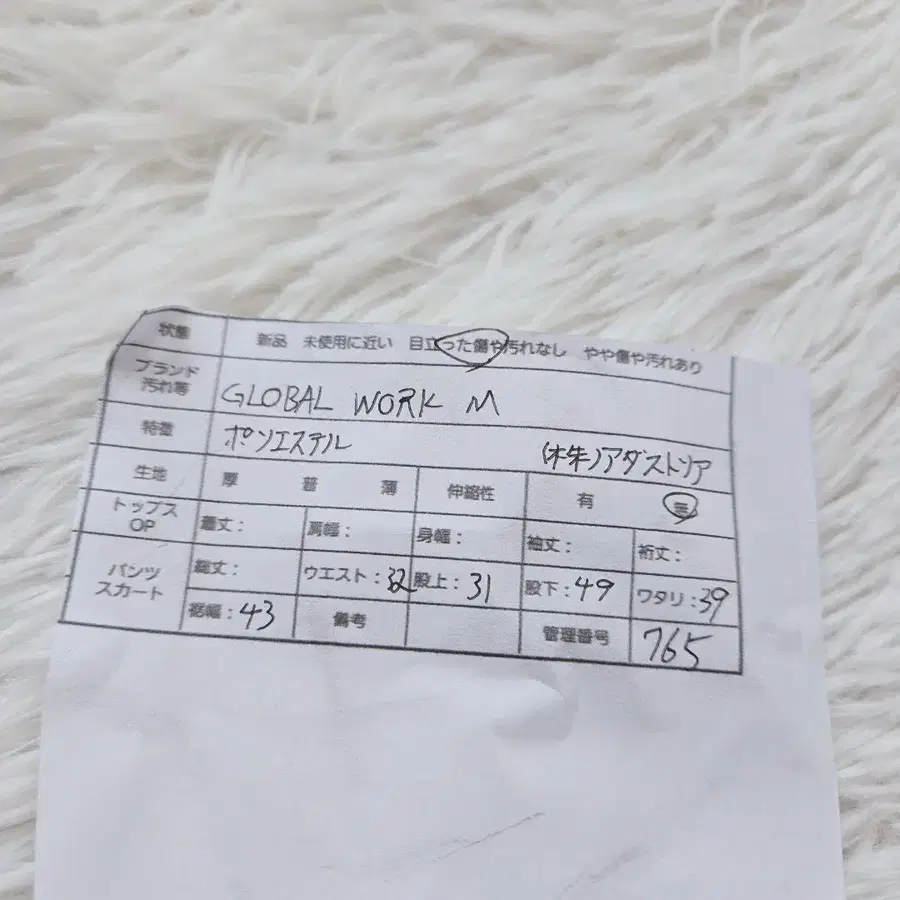 状態 新品 未使用に近い 目立った傷や汚れなし やや傷や汚れあり
ブランド 汚れ等 GLOBAL WORK M
特徴 ポリエステル (株)アダストリア
生地 厚 普 薄 伸縮性 有 無
トップス OP 着丈: 肩幅: 身幅: 袖丈: 裄丈:
パンツ スカート 総丈: ウエスト:32 股上:31 股下:49 ワタリ:39
裾幅:43 備考 管理番号 765